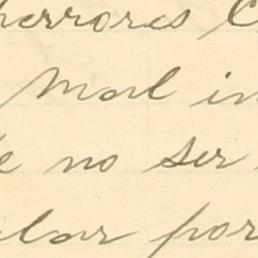 herrores C
Mosl in
e no ser
lar por